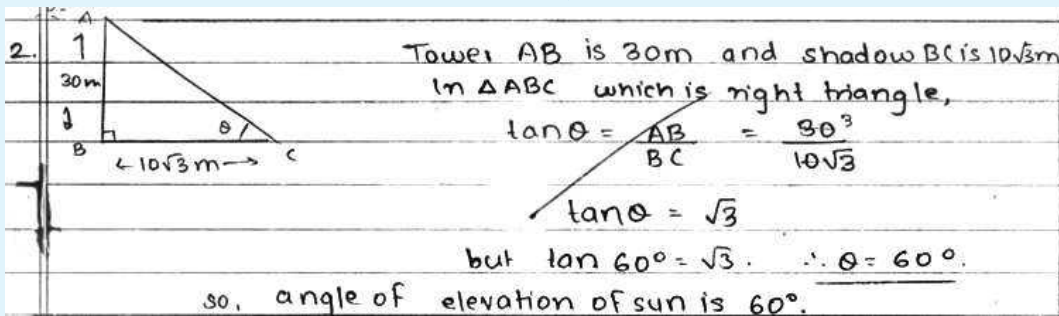 2.
A
30m
B
θ
C
←10√3m→
Tower AB is 30m and shadow BC is 10√3m
In ΔABC which is right triangle,
tanθ = AB/BC = 30³/10√3
tanθ = √3
but tan 60° = √3. ∴ θ = 60°.
so, angle of elevation of sun is 60°.